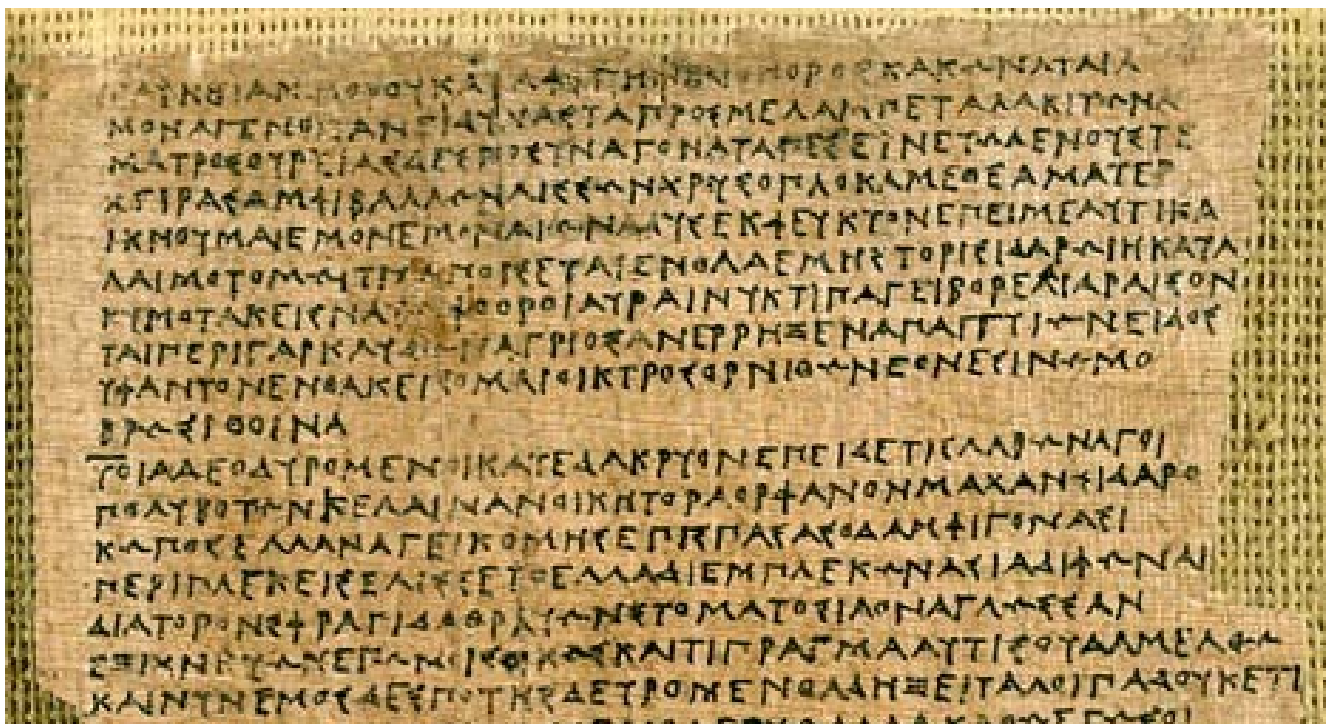 ΚΑΚΩΝΛΥΤΑΙΑ
ΜΟΝΑΓΕΝΟΙΤΑΝΕΙΔΥΝΑΣΤΑΠΡΟΣΜΕΛΑΜΠΕΤΑΛΟΧΙΤΩΝΑ
ΜΑΤΡΟΣΟΥΡΕΙΑΣΔΕΣΠΟΣΥΝΑΓΟΝΑΤΑΠΕΣΕΙΝΕΥΩΛΕΝΟΥΣΤΕ
ΧΕΙΡΑΣΑΜΦΙΒΑΛΛΩΝΛΙΣΣΩΝΧΡΥΣΟΠΛΟΚΑΜΕΘΕΑΜΑΤΕΡ
ΙΚΝΟΥΜΑΙΕΜΟΝΕΜΟΝΑΙΩΝΑΔΥΣΕΚΦΕΥΚΤΟΝΕΠΕΙΜΕΑΥΤΙΚΑ
ΛΑΙΜΟΤΟΜΩΙΤΙΣΑΠΟΙΣΕΤΑΙΕΝΘΑΔΕΜΗΣΤΟΡΙΣΙΔΑΡΩΙΗΚΑΤΑ
ΚΥΜΟΤΑΚΕΙΣΝΑΥΣΙΦΘΟΡΟΙΑΥΡΑΙΝΥΚΤΙΠΑΓΕΙΒΟΡΕΑΙΔΙΑΡΑΙΣΟΝ
ΤΑΙΠΕΡΙΓΑΡΚΛΥΔΩΝΑΓΡΙΟΣΑΝΕΡΡΗΞΕΝΑΠΑΓΓΥΙΩΝΕΙΔΟΣ
ΥΦΑΝΤΟΝΕΝΘΑΚΕΙΣΟΜΑΙΟΙΚΤΡΟΣΟΡΝΙΘΩΝΕΘΝΕΣΙΝΩΜΟ
ΒΡΩΣΙΘΟΙΝΑ
ΤΟΙΑΔΕΟΔΥΡΟΜΕΝΟΙΚΑΤΕΔΑΚΡΥΟΝΕΠΕΙΔΕΤΙΣΛΑΒΩΝΑΓΟΙ
ΠΟΛΥΒΟΤΩΝΚΕΛΑΙΝΑΝΟΙΚΗΤΟΡΑΟΡΦΑΝΟΝΜΑΧΑΝΣΙΔΑΡΟ
ΚΩΠΟΣΕΛΛΑΝΑΓΕΙΚΟΜΗΣΕΠΙΣΠΑΣΑΣΟΔΑΜΦΙΓΟΝΑΣΙ
ΠΕΡΙΠΛΕΚΕΙΣΕΛΙΣΣΕΤΟΕΛΛΑΔΙΕΜΠΛΕΚΩΝΑΣΙΑΔΙΦΩΝΑΙ
ΔΙΑΤΟΡΟΝΣΦΡΑΓΙΔΑΘΡΑΥΩΝΣΤΟΜΑΤΟΣΙΑΟΝΑΓΛΩΣΣΑΝ
ΕΞΙΧΝΕΥΩΝΕΓΩΜΟΙΣΟΙΚΩΣΚΑΙΤΙΠΡΑΓΜΑΑΥΤΙΣΟΥΔΑΜΕΛΘΩ
ΚΑΙΝΥΝΕΜΟΣΔΕΣΠΟΤΗΣΔΕΥΡΟΜΕΝΘΑΔΗΞΕΙΤΑΛΟΙΠΑΔΟΥΚΕΤΙ